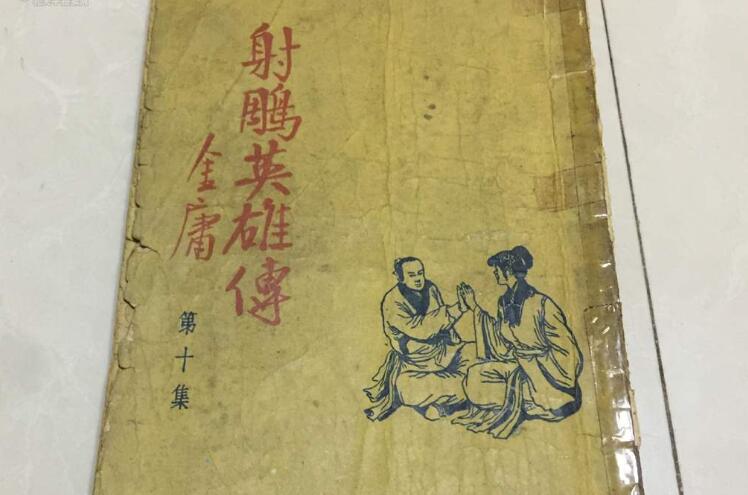 射鵰英雄傳
金庸
第十集